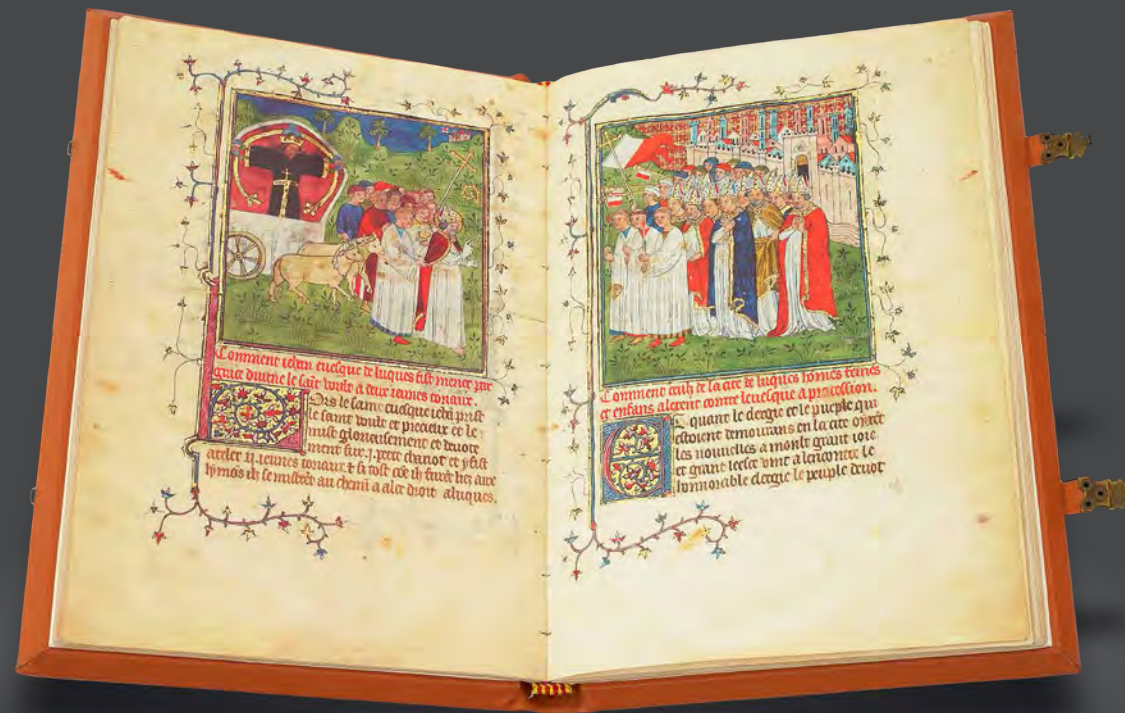 Comment iehan euesque de luques fist mener par
grace diuine le sait voult a deux ieunes toriaux.
Ors le saint euesque iehā prist
le saint voult et precieux et le
mist glorieusement et deuote
ment sur .j. petit chariot et y fist
ateler .ij. ieunes toriaux. et
se mistrēt au chemī a aler droit a luques.
Comment ceulx de la cite de luques hōmes femes
et enfans alerent contre leuesque a procession.
Et quant le clergie et le pueple qui
estoient demourans en la cite oyrēt
les nouuelles a moult grant ioie
et grant leesce vint a lencontre le
honnorable clergie le peuple deuot